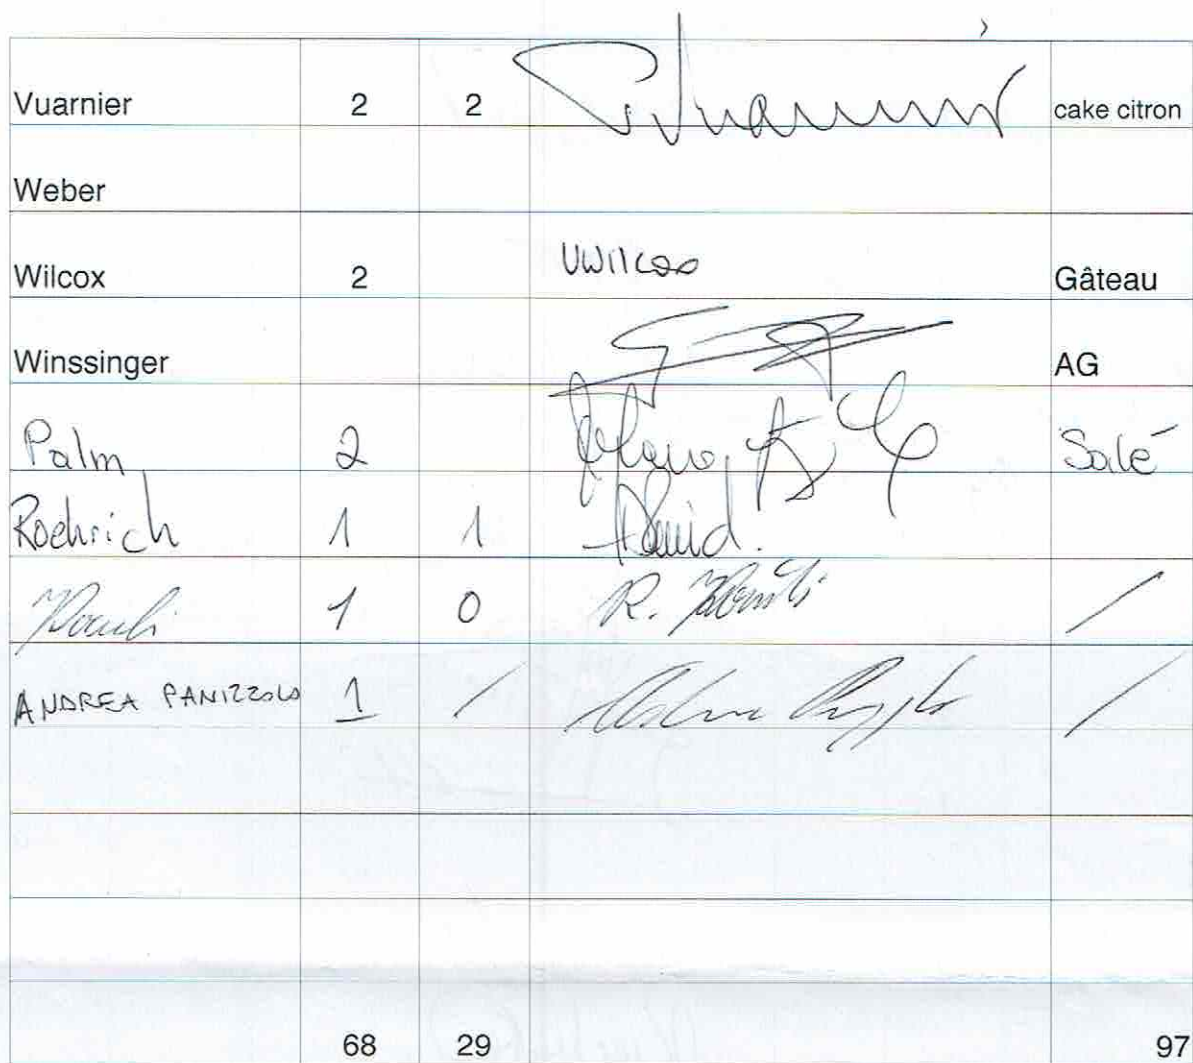 Vuarnier 2 2 Vuarnier cake citron
Weber
Wilcox 2 VWilcox Gâteau
Winssinger AG
Palm 2 Salé
Roehrich 1 1 David.
1 0 R. /
ANDREA PANIZZOLO 1 / /
68 29 97